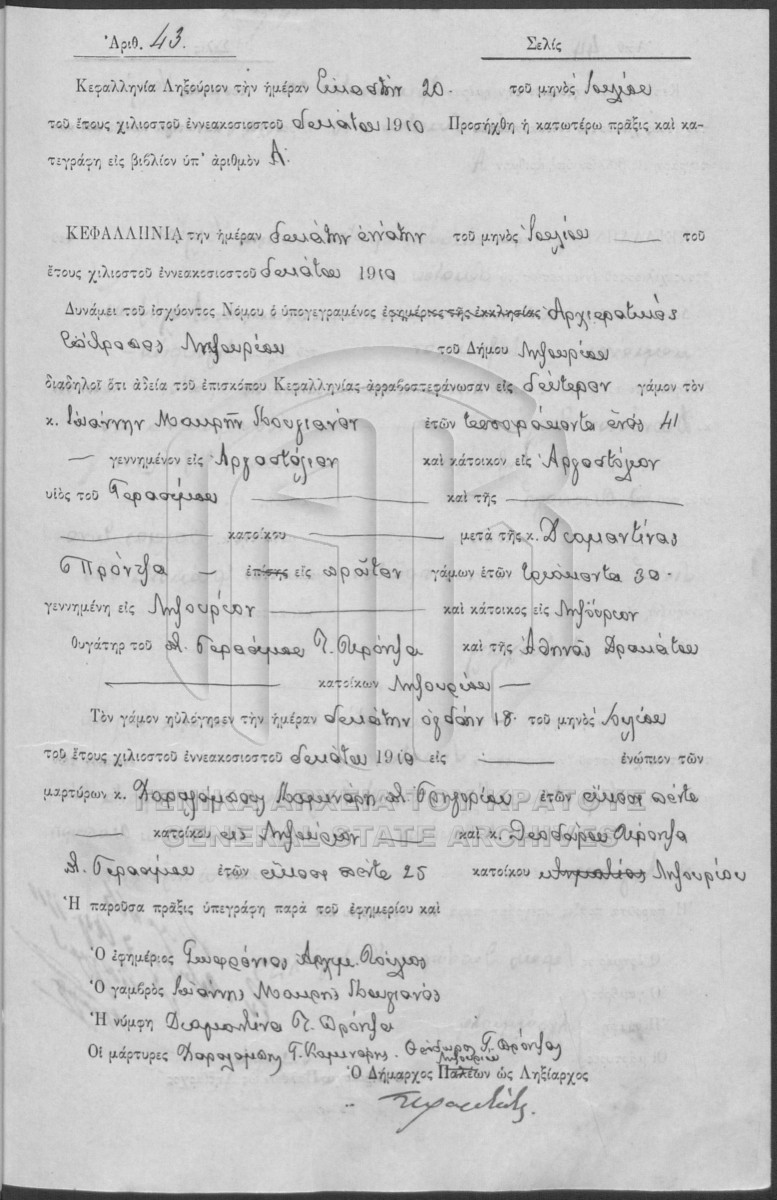 Ἀριθ. 43. Σελὶς
Κεφαλληνία Ληξούριον τὴν ἡμέραν Εἰκοστὴν 20. τοῦ μηνὸς Ἰουλίου
τοῦ ἔτους χιλιοστοῦ ἐννεακοσιοστοῦ δεκάτου 1910 Προσήχθη ἡ κατωτέρω πρᾶξις καὶ κα-
τεγράφη εἰς βιβλίον ὑπ' ἀριθμὸν Α.
ΚΕΦΑΛΛΗΝΙΑ την ἡμέραν δεκάτην ἐνάτην τοῦ μηνὸς Ἰουλίου τοῦ
ἔτους χιλιοστοῦ ἐννεακοσιοστοῦ δεκάτου 1910
Δυνάμει τοῦ ἰσχύοντος Νόμου ὁ ὑπογεγραμένος ἐφημέριος τῆς ἐκκλησίας Ἀρχιερατικὸς
Ἐπίτροπος Ληξουρίου τοῦ Δήμου Ληξουρίου
διαδηλοῖ ὅτι ἀδεία τοῦ ἐπισκόπου Κεφαλληνίας ἀρραβοστεφάνωσαν εἰς δεύτερον γάμον τὸν
κ. Ἰωάννην Μακρῆν ἐτῶν τεσσαράκοντα ἑνὸς 41
γεννημένον εἰς Ἀργοστόλιον καὶ κάτοικον εἰς Ἀργοστόλιον
υἱὸς τοῦ Γερασίμου καὶ τῆς
κατοίκου μετὰ τῆς κ. Διαμαντίνας
Πρόντζα ἐπίσης εἰς πρῶτον γάμων ἐτῶν τριάκοντα 30.
γεννημένη εἰς Ληξούριον καὶ κάτοικος εἰς Ληξούριον
θυγάτηρ τοῦ π. Γερασίμου Γ. Πρόντζα καὶ τῆς Ἀθηνᾶς Δρακάτου
κατοίκων Ληξουρίου
Τὸν γάμον ηὐλόγησεν τὴν ἡμέραν δεκάτην ὀγδόην 18. τοῦ μηνὸς Ἰουλίου
τοῦ ἔτους χιλιοστοῦ ἐννεακοσιοστοῦ δεκάτου 1910 εἰς ἐνώπιον τῶν
μαρτύρων κ. Χαραλάμπους π. Γρηγορίου ἐτῶν εἴκοσι πέντε
ΓΕΝΙΚΑ ΑΡΧΕΙΑ ΤΟΥ ΚΡΑΤΟΥΣ
κατοίκου εἰς Ληξούριον καὶ κ. Θεοδώρου Πρόντζα
GENERAL STATE ARCHIVES
π. Γερασίμου ἐτῶν εἴκοσι πέντε 25 κατοίκου Ληξουρίου
Ἡ παροῦσα πρᾶξις ὑπεγράφη παρὰ τοῦ ἐφημερίου καὶ
Ὁ ἐφημέριος Ἀρχιμ.
Ὁ γαμβρὸς Ἰωάννης Μακρῆς
Ἡ νύμφη Διαμαντίνα Γ. Πρόντζα
Οἱ μάρτυρες Χαραλάμπης Γ. Θεόδωρος Γ. Πρόντζας
Ληξουρίου
Ὁ Δήμαρχος Παλέων ὡς Ληξίαρχος